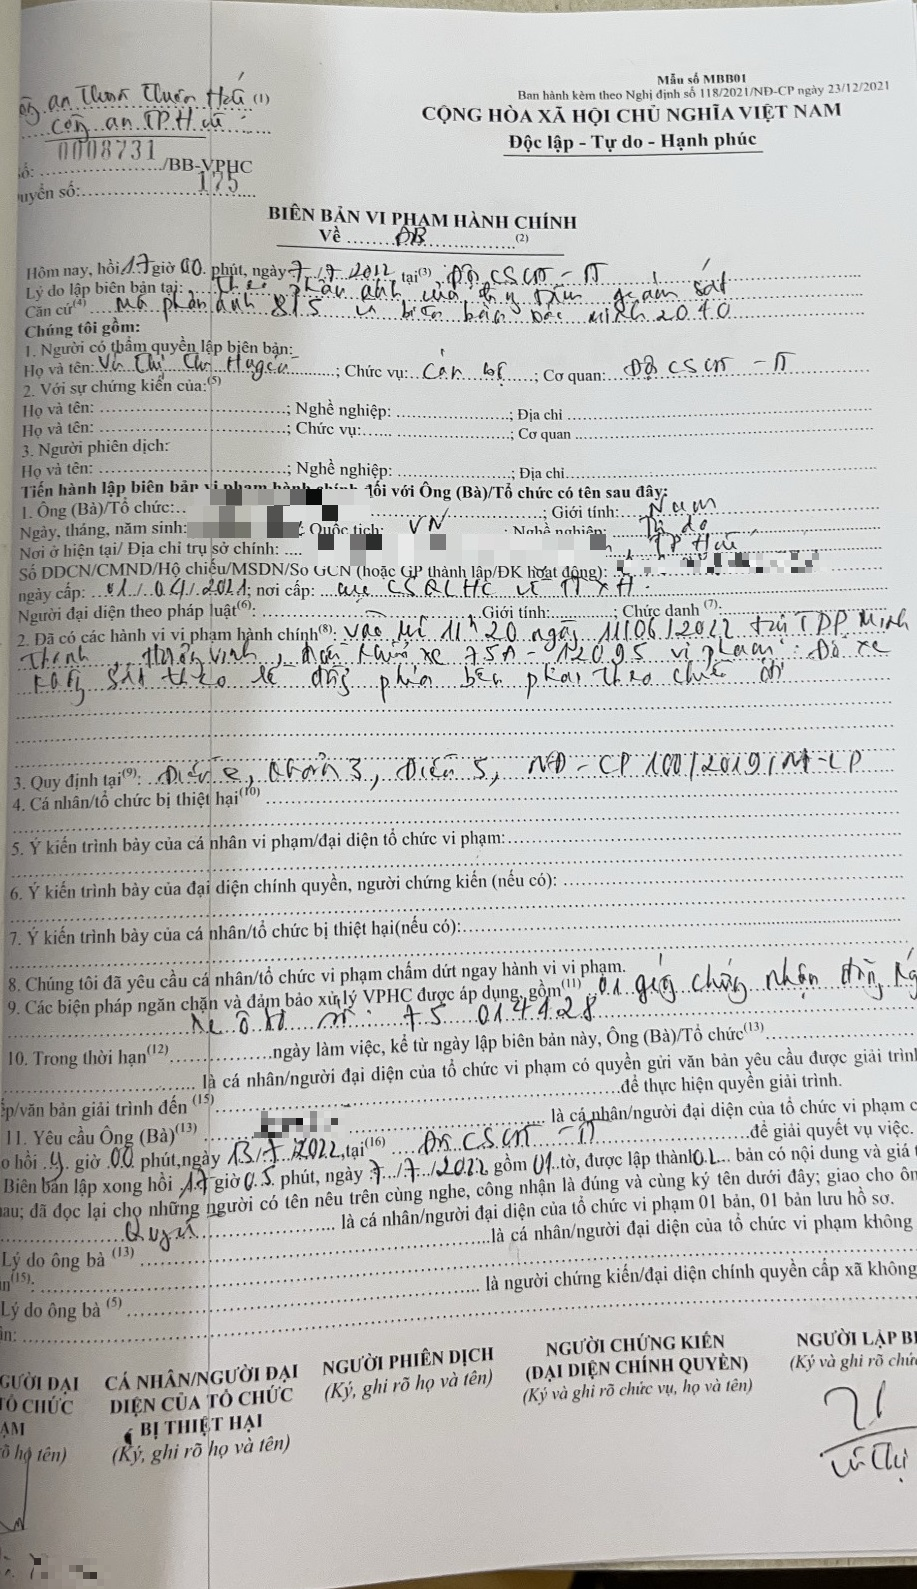 Mẫu số MBB01
Ban hành kèm theo Nghị định số 118/2021/NĐ-CP ngày 23/12/2021
an Thuận Hoá (1)
công an TP. Huế
CỘNG HÒA XÃ HỘI CHỦ NGHĨA VIỆT NAM
Độc lập - Tự do - Hạnh phúc
0008731
số: ................/BB-VPHC
uyển số: 175
BIÊN BẢN VI PHẠM HÀNH CHÍNH
Về ĐB (2)
Hôm nay, hồi 17 giờ 00 phút, ngày 7/7/2022 tại(3)
Lý do lập biên bản tại: Theo phản ánh của giám sát
Căn cứ(4) Mã phản ánh 815 và biên bản xác minh 2040
Chúng tôi gồm:
1. Người có thẩm quyền lập biên bản:
Họ và tên: Thị; Chức vụ: Cán bộ; Cơ quan: Đội CS
2. Với sự chứng kiến của:(5)
Họ và tên: ................; Nghề nghiệp: ................; Địa chỉ ................
Họ và tên: ................; Chức vụ: ................; Cơ quan ................
3. Người phiên dịch:
Họ và tên: ................; Nghề nghiệp: ................; Địa chỉ ................
Tiến hành lập biên bản vi phạm hành chính đối với Ông (Bà)/Tổ chức có tên sau đây:
1. Ông (Bà)/Tổ chức: ; Giới tính: Nam
Ngày, tháng, năm sinh: Quốc tịch: VN ; Nghề nghiệp: Tự do
Nơi ở hiện tại/ Địa chỉ trụ sở chính: .... , TP Huế
Số DDCN/CMND/Hộ chiếu/MSDN/Số GCN (hoặc GP thành lập/ĐK hoạt động):
ngày cấp: 01/04/2021; nơi cấp: cục CSQLHC về TTXH.
Người đại diện theo pháp luật(6): ................ Giới tính: ................; Chức danh (7):
2. Đã có các hành vi vi phạm hành chính(8): Vào lúc 11h20 ngày 11/06/2022 tại TDP Minh
Thanh, , điều khiển xe 75A-12095 vi phạm: Đỗ xe
không sát theo lề đường phía bên phải theo chiều đi
3. Quy định tại(9): Điểm e, Khoản 3, Điều 5, NĐ-CP 100/2019/NĐ-CP
4. Cá nhân/tổ chức bị thiệt hại(10)
5. Ý kiến trình bày của cá nhân vi phạm/đại diện tổ chức vi phạm:
6. Ý kiến trình bày của đại diện chính quyền, người chứng kiến (nếu có):
7. Ý kiến trình bày của cá nhân/tổ chức bị thiệt hại(nếu có):
8. Chúng tôi đã yêu cầu cá nhân/tổ chức vi phạm chấm dứt ngay hành vi vi phạm.
9. Các biện pháp ngăn chặn và đảm bảo xử lý VPHC được áp dụng, gồm(11) 01 giấy chứng nhận đăng ký
xe ô tô số: 75 014928
10. Trong thời hạn(12)................ngày làm việc, kể từ ngày lập biên bản này, Ông (Bà)/Tổ chức(13)
................ là cá nhân/người đại diện của tổ chức vi phạm có quyền gửi văn bản yêu cầu được giải trình
ếp/văn bản giải trình đến (15) ................để thực hiện quyền giải trình.
11. Yêu cầu Ông (Bà)(13) ................ là cá nhân/người đại diện của tổ chức vi phạm c
o hồi 9 giờ 00 phút, ngày 13/7/2022, tại(16) Đội CS ................để giải quyết vụ việc.
Biên bản lập xong hồi 17 giờ 05 phút, ngày 7/7/2022 gồm 01 tờ, được lập thành 02 bản có nội dung và giá t
hau; đã đọc lại cho những người có tên nêu trên cùng nghe, công nhận là đúng và cùng ký tên dưới đây; giao cho ôn
Quyết ................ là cá nhân/người đại diện của tổ chức vi phạm 01 bản, 01 bản lưu hồ sơ.
Lý do ông bà (13) ................là cá nhân/người đại diện của tổ chức vi phạm không
n(15): ................ là người chứng kiến/đại diện chính quyền cấp xã không
Lý do ông bà (5)
ận:
GƯỜI ĐẠI
TỔ CHỨC
ẠM
õ họ tên)
CÁ NHÂN/NGƯỜI ĐẠI
DIỆN CỦA TỔ CHỨC
BỊ THIỆT HẠI
(Ký, ghi rõ họ và tên)
NGƯỜI PHIÊN DỊCH
(Ký, ghi rõ họ và tên)
NGƯỜI CHỨNG KIẾN
(ĐẠI DIỆN CHÍNH QUYỀN)
(Ký và ghi rõ chức vụ, họ và tên)
NGƯỜI LẬP BI
(Ký và ghi rõ chức
Thị